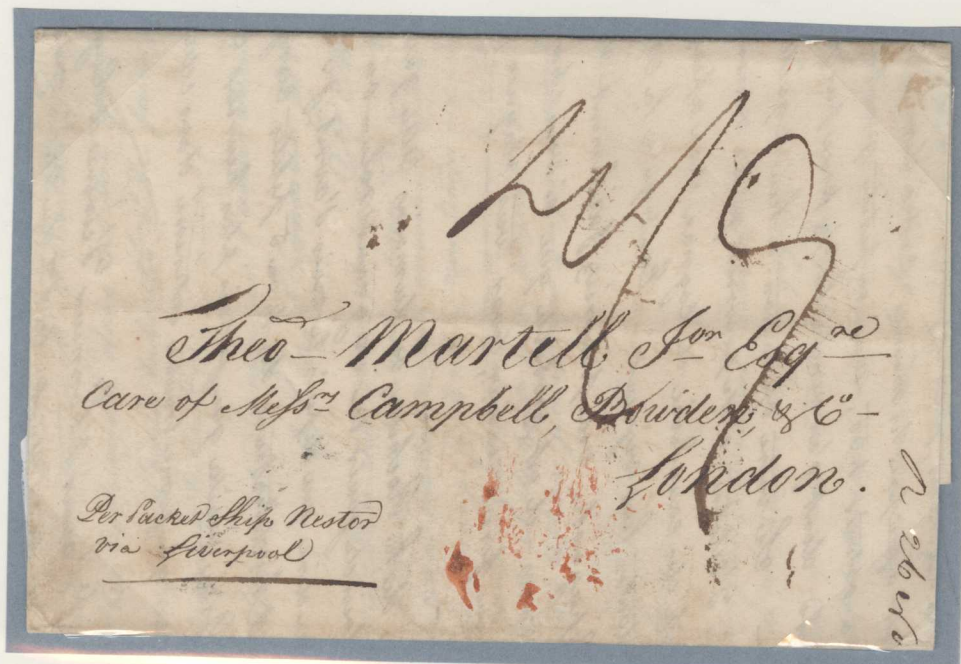 2/9
Theo Martell Jor Esqre
Care of Messrs Campbell, Bowden, & Co
London.
Per Packet Ship Nestor
via Liverpool